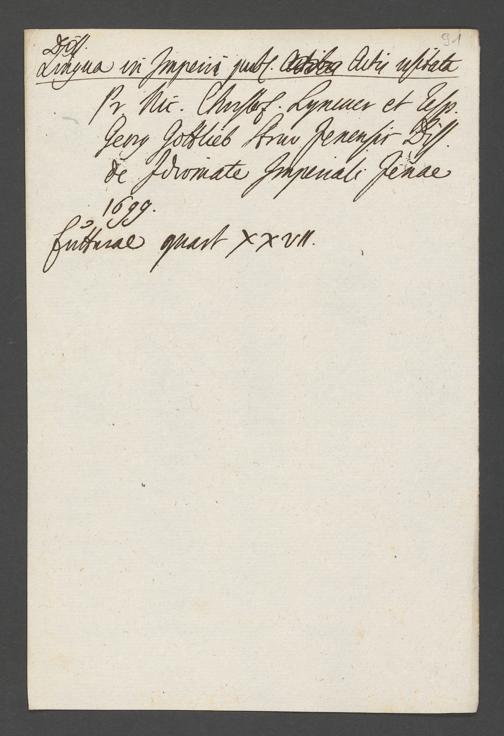 91
Diss.
Lingua in Imperii publ. Actis usitata
Pr. Nic. Christof. Lyncker et Resp.
Georg Gottlieb Struv Jenensis Diss.
de Idiomate Imperiali Jenae
1699.
quart XXVII.